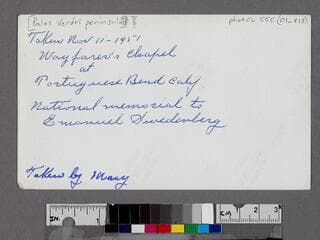 [Palos Verdes peninsula]
photCL 555 (01-813)
Taken Nov 11-1951
Wayfarer's Chapel
at
Portuguese Bend Calif
National memorial to
Emanuel Swedenberg
Taken by Mary
IN.
1
CM
2
3